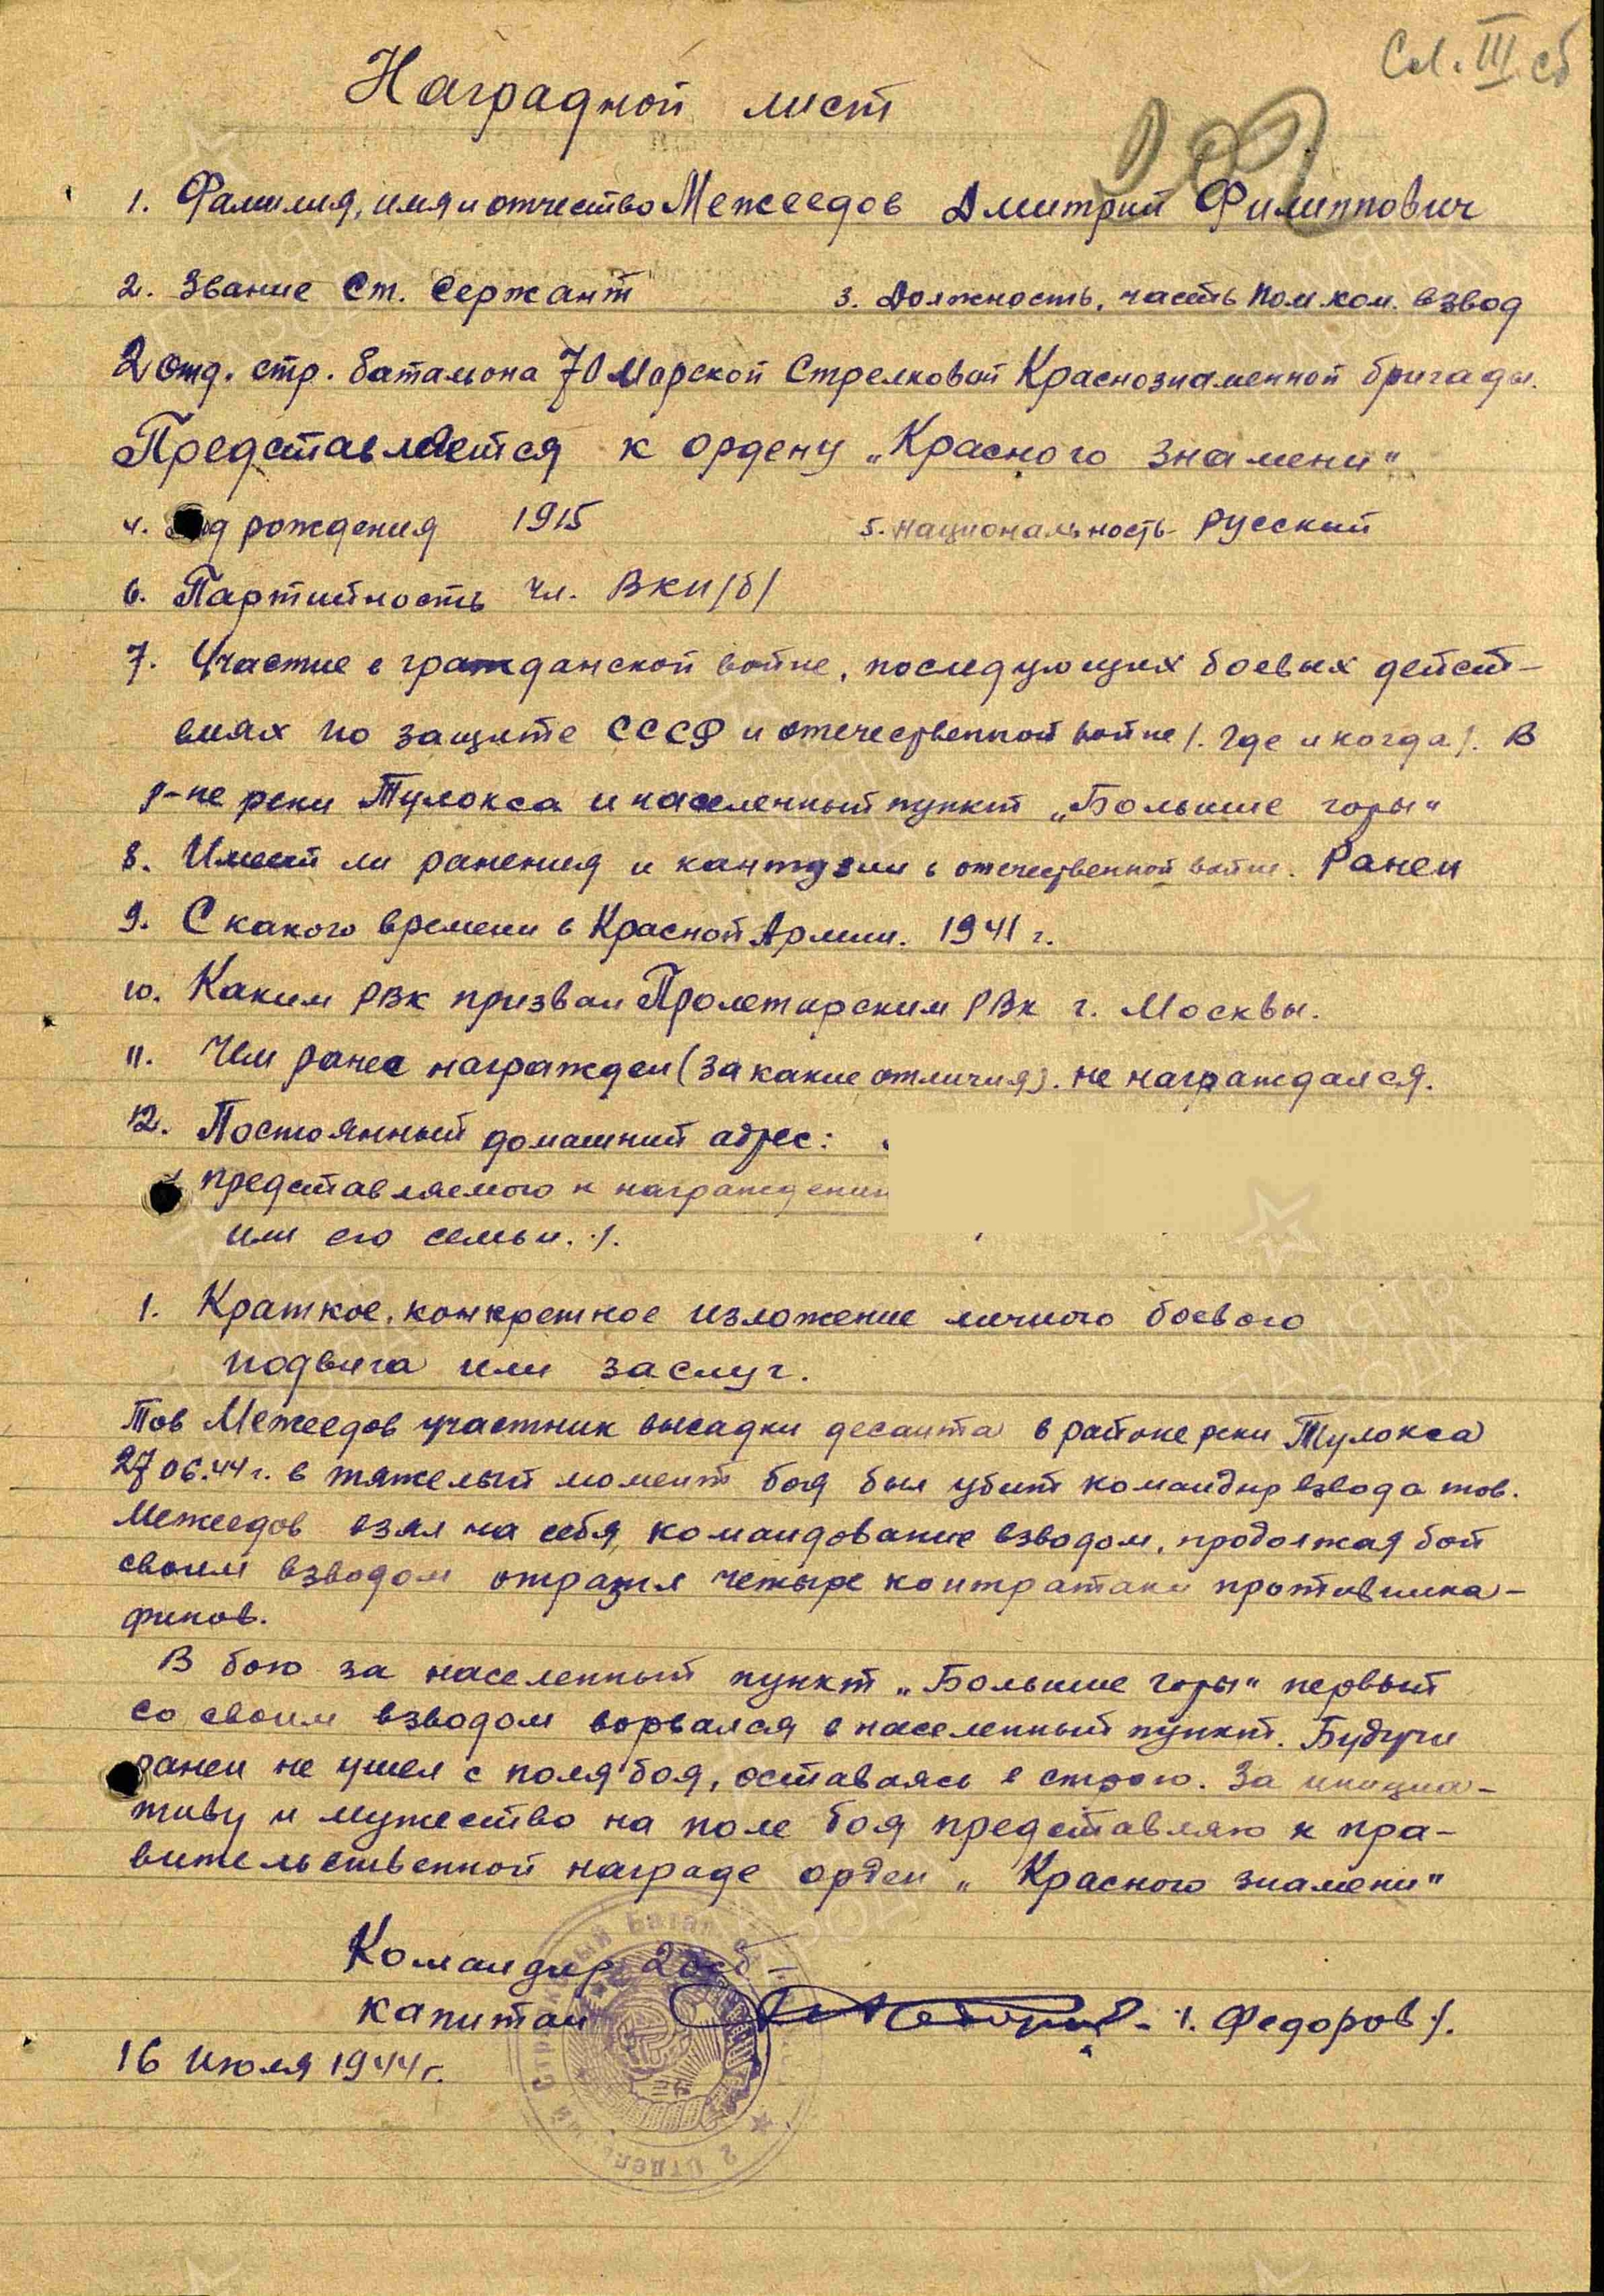 Сл. III ст
Наградной лист
1. Фамилия, имя и отчество Межеедов Дмитрий Филиппович
2. Звание Ст. Сержант 3. Должность, часть Пом. ком. взвод
2 отд. стр. батальона 70 Морской Стрелковой Краснознаменной бригады.
Представляется к ордену „Красного знамени"
4. год рождения 1915 5. национальность русский
6. Партийность чл. ВКП/б/
7. Участие в гражданской войне, последующих боевых дейст-
виях по защите СССР и отечественной войне /. где и когда/. В
р-не реки Тулокса и населенный пункт „Большие горы"
8. Имеет ли ранения и кантузии в отечественной войне. Ранен
9. С какого времени в Красной Армии. 1941 г.
10. Каким РВК призван Пролетарским РВК г. Москвы.
11. Чем ранее награжден (за какие отличия). не награждался.
12. Постоянный домашний адрес:
представляемого к награждению
или его семьи. /.
1. Краткое, конкретное изложение личного боевого
подвига или заслуг.
Тов Межеедов участник высадки десанта в районе реки Тулокса
27 06.44 г. в тяжелый момент боя был убит командир взвода тов.
Межеедов взял на себя командование взводом, продолжая бой
своим взводом отразил четыре контратаки противника-
финов.
В бою за населенный пункт „Большие горы" первый
со своим взводом ворвался в населенный пункт. Будучи
ранен не ушел с поля боя, оставаясь в строю. За инициа-
тиву и мужество на поле боя представляю к пра-
вительственной награде орден „Красного знамени"
Командир 2 осб
капитан /. Федоров /.
16 Июля 1944 г.
2 Отдельный Стрелковый Батальон